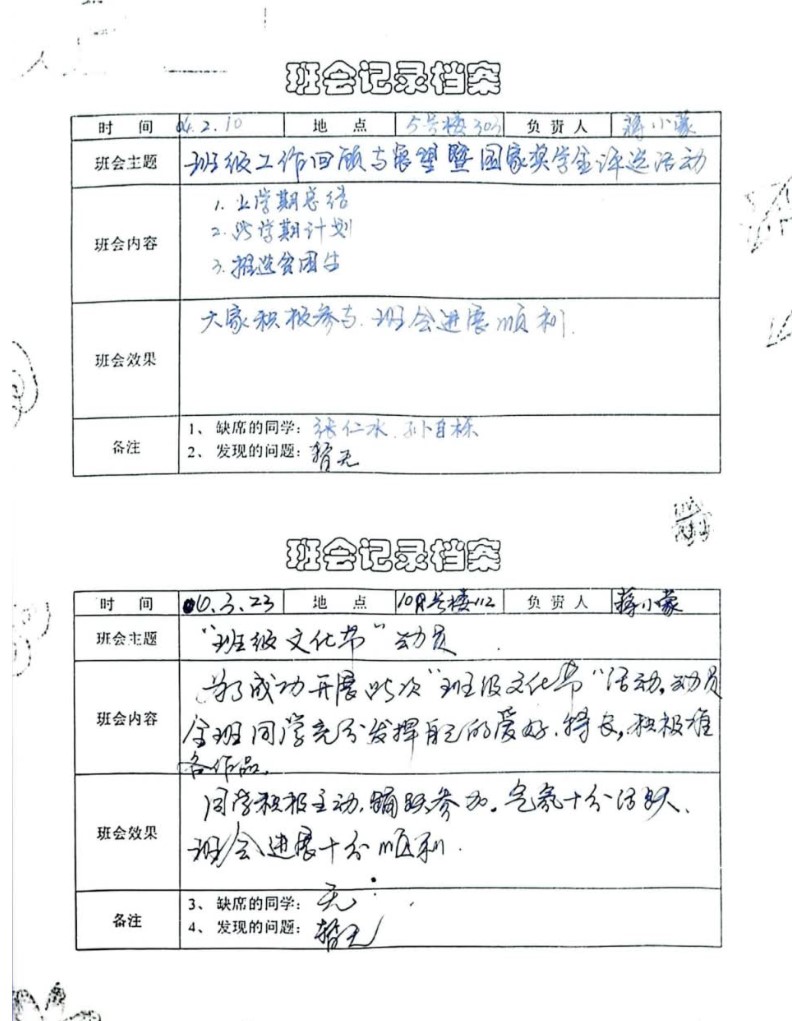 班会记录档案
时 间 06.2.10 地 点 5号楼303 负责人 蒋小蒙
班会主题 班级工作回顾与展望暨国家奖学金评选活动
班会内容 1. 上学期总结
2. 此学期计划
3. 推选贫困生
班会效果 大家积极参与.班会进展顺利.
备注 1、缺席的同学：张仁水.孙自栋
2、发现的问题：暂无
班会记录档案
时 间 06.3.23 地 点 10号楼112 负责人 蒋小蒙
班会主题 “班级文化节”动员.
班会内容 为了成功开展此次“班级文化节”活动,动员
全班同学充分发挥自己的爱好.特长,积极准
备作品.
班会效果 同学积极主动,踊跃参加。气氛十分活跃、
班会进展十分顺利.
备注 3、缺席的同学：无
4、发现的问题：暂无